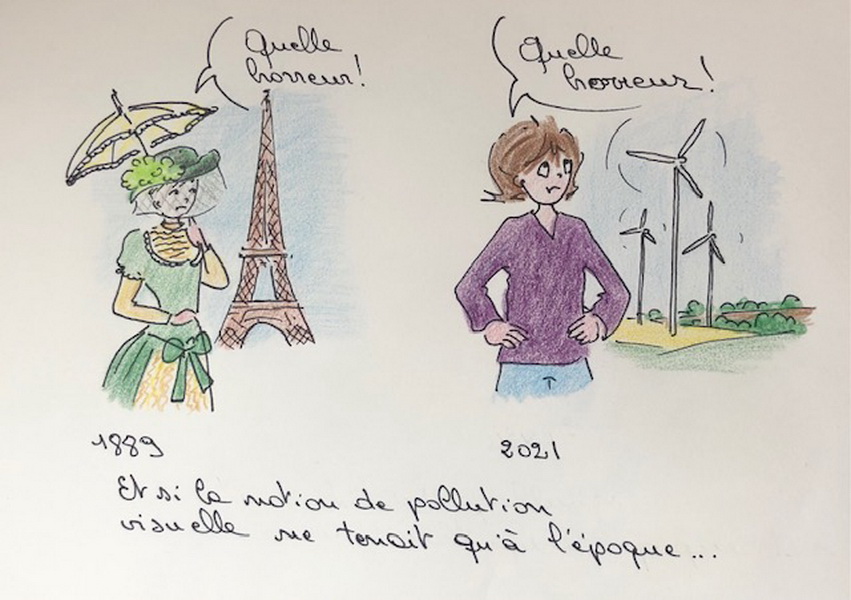 Quelle
horreur!
Quelle
horreur!
1889
2021
Et si la notion de pollution
visuelle ne tenait qu'à l'époque...